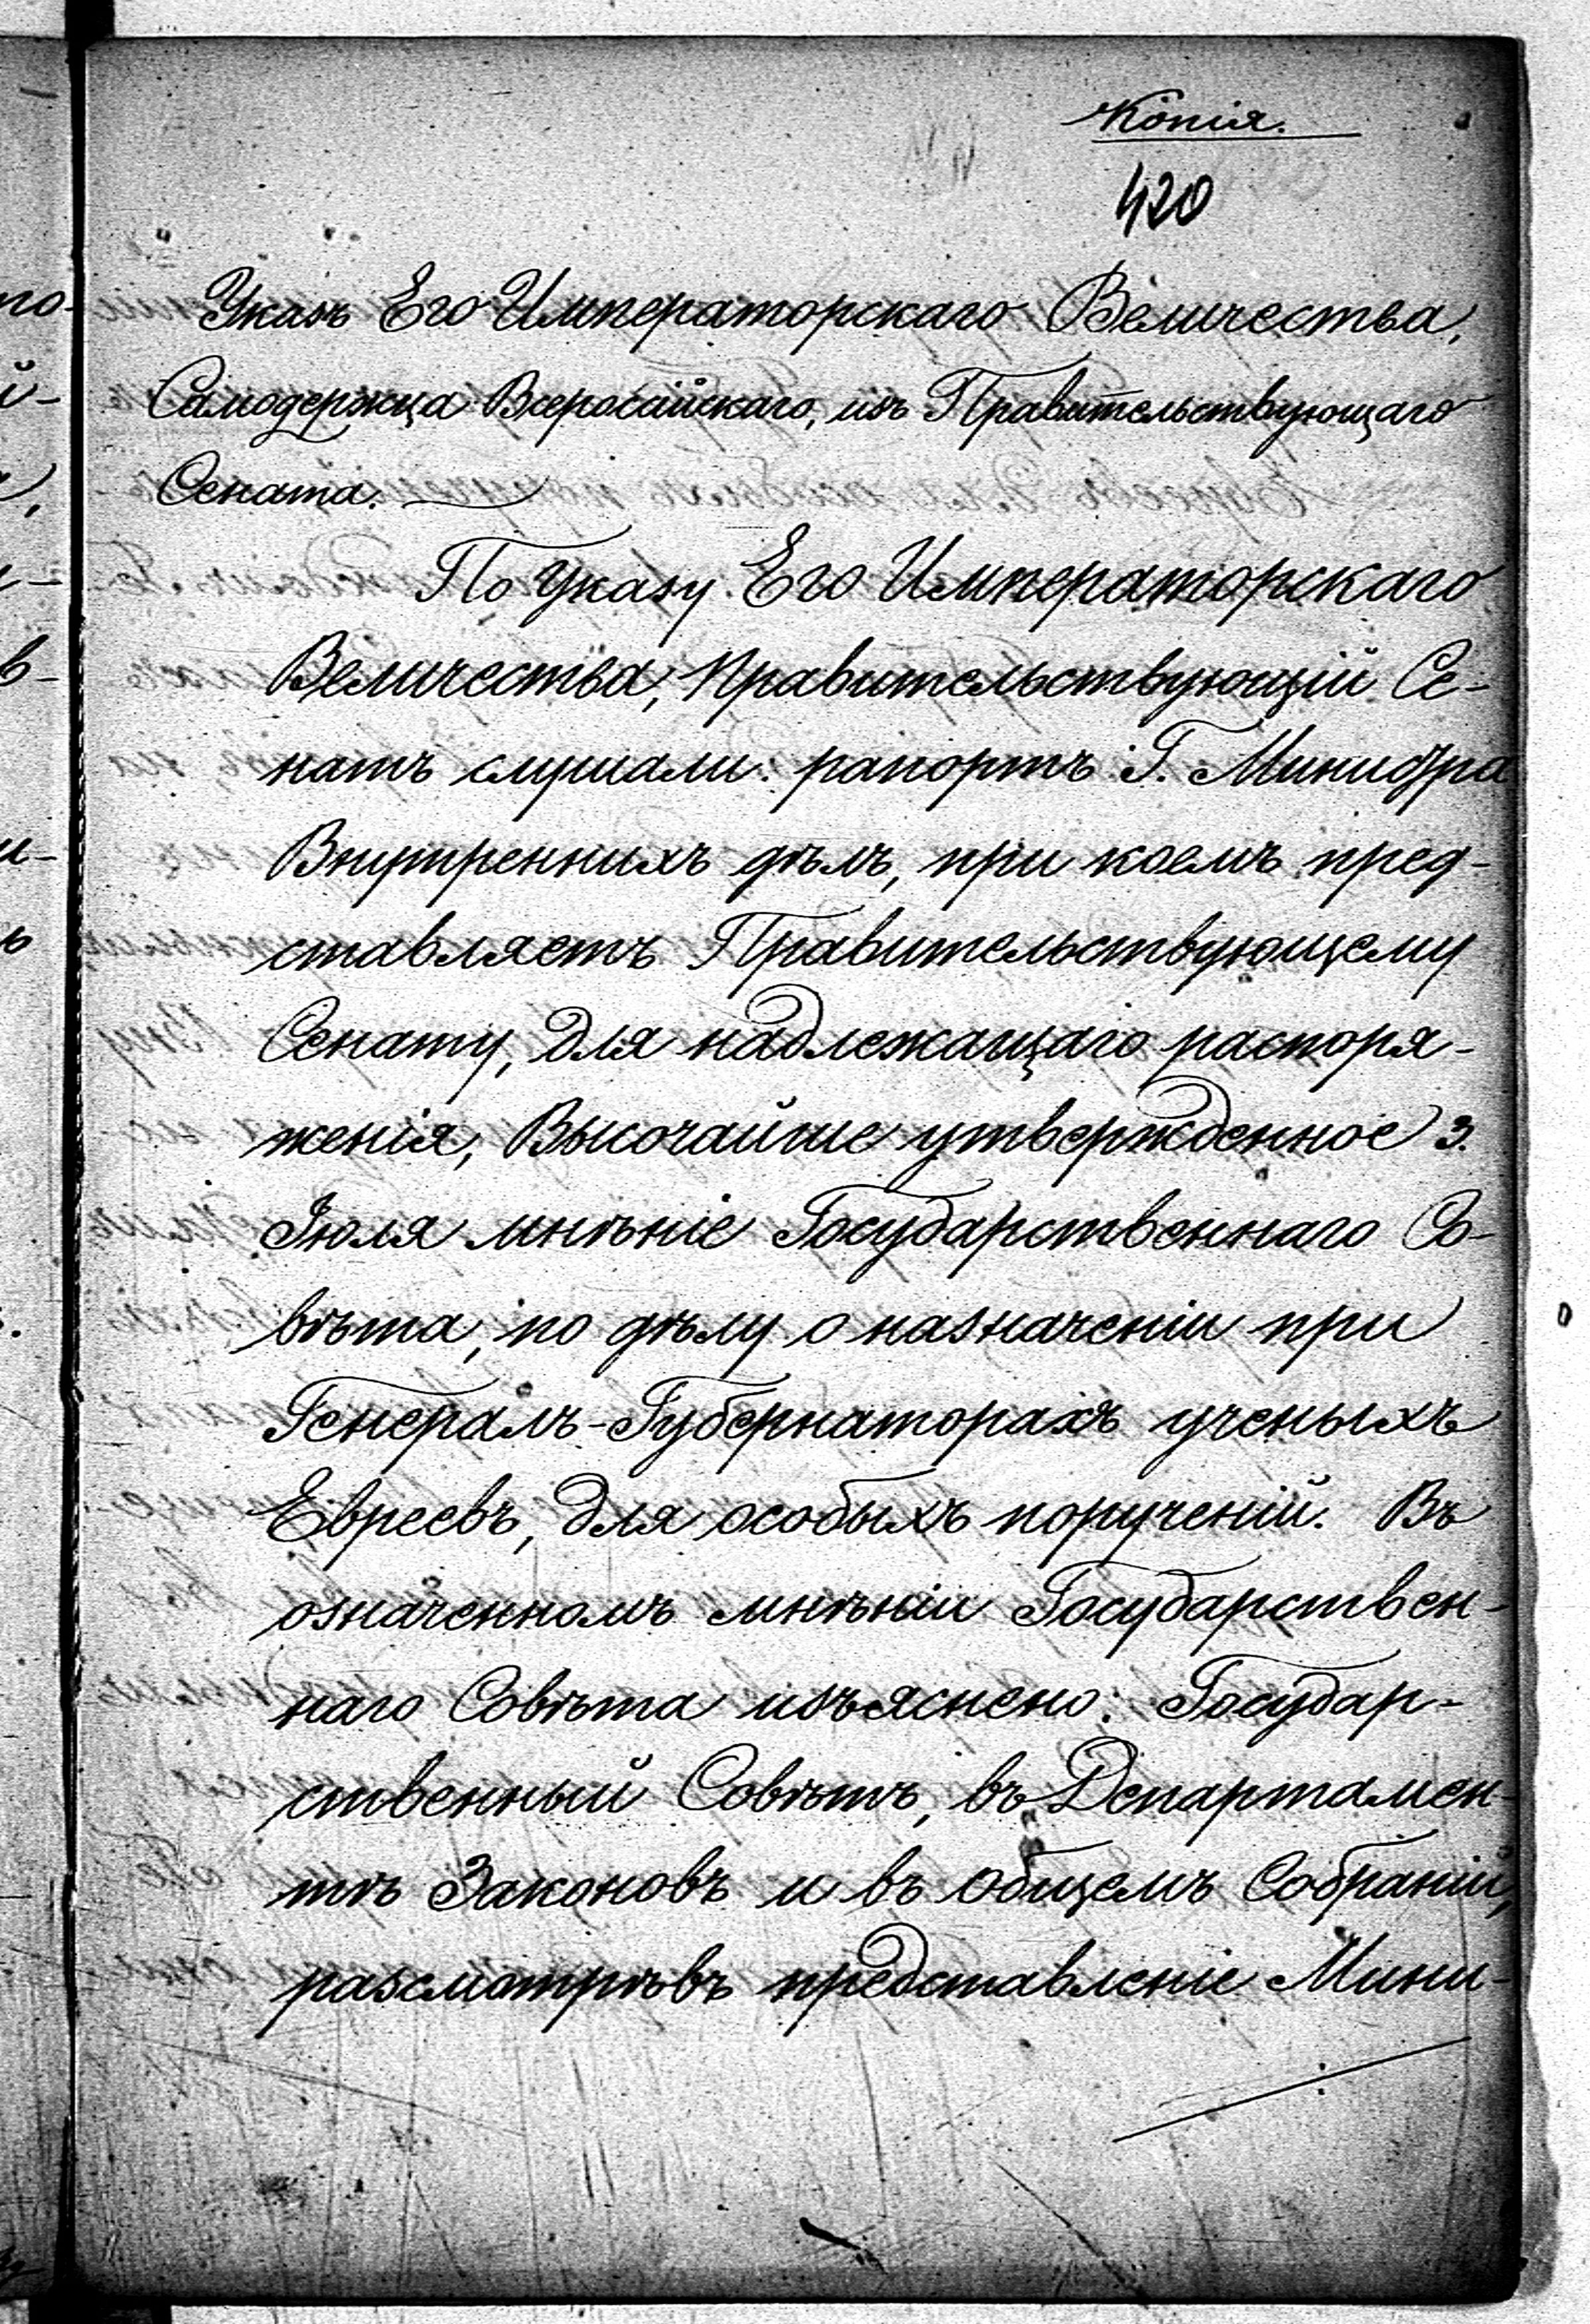 Копія.
420
Указъ Его Императорскаго Величества,
Самодержца Всеросайскаго, изъ Правительствующаго
Сената.
По Указу Его Императорскаго
Величества, Правительствующій Се-
натъ слушали: рапортъ Г. Министра
Внутреннихъ дѣлъ, при коемъ пред-
ставляетъ Правительствующему
Сенату, для надлежащаго распоря-
женія, Высочайше утвержденное 3.
Іюля мнѣніе Государственнаго Со-
вѣта, по дѣлу о назначеніи при
Генералъ-Губернаторахъ ученыхъ
Евреевъ, для особыхъ порученій. Въ
означенномъ мнѣніи Государствен-
наго Совѣта изъяснено: Государ-
ственный Совѣтъ, въ Департамен-
тѣ Законовъ и въ общемъ Собраніи,
разсмотрѣвъ представленіе Мини-